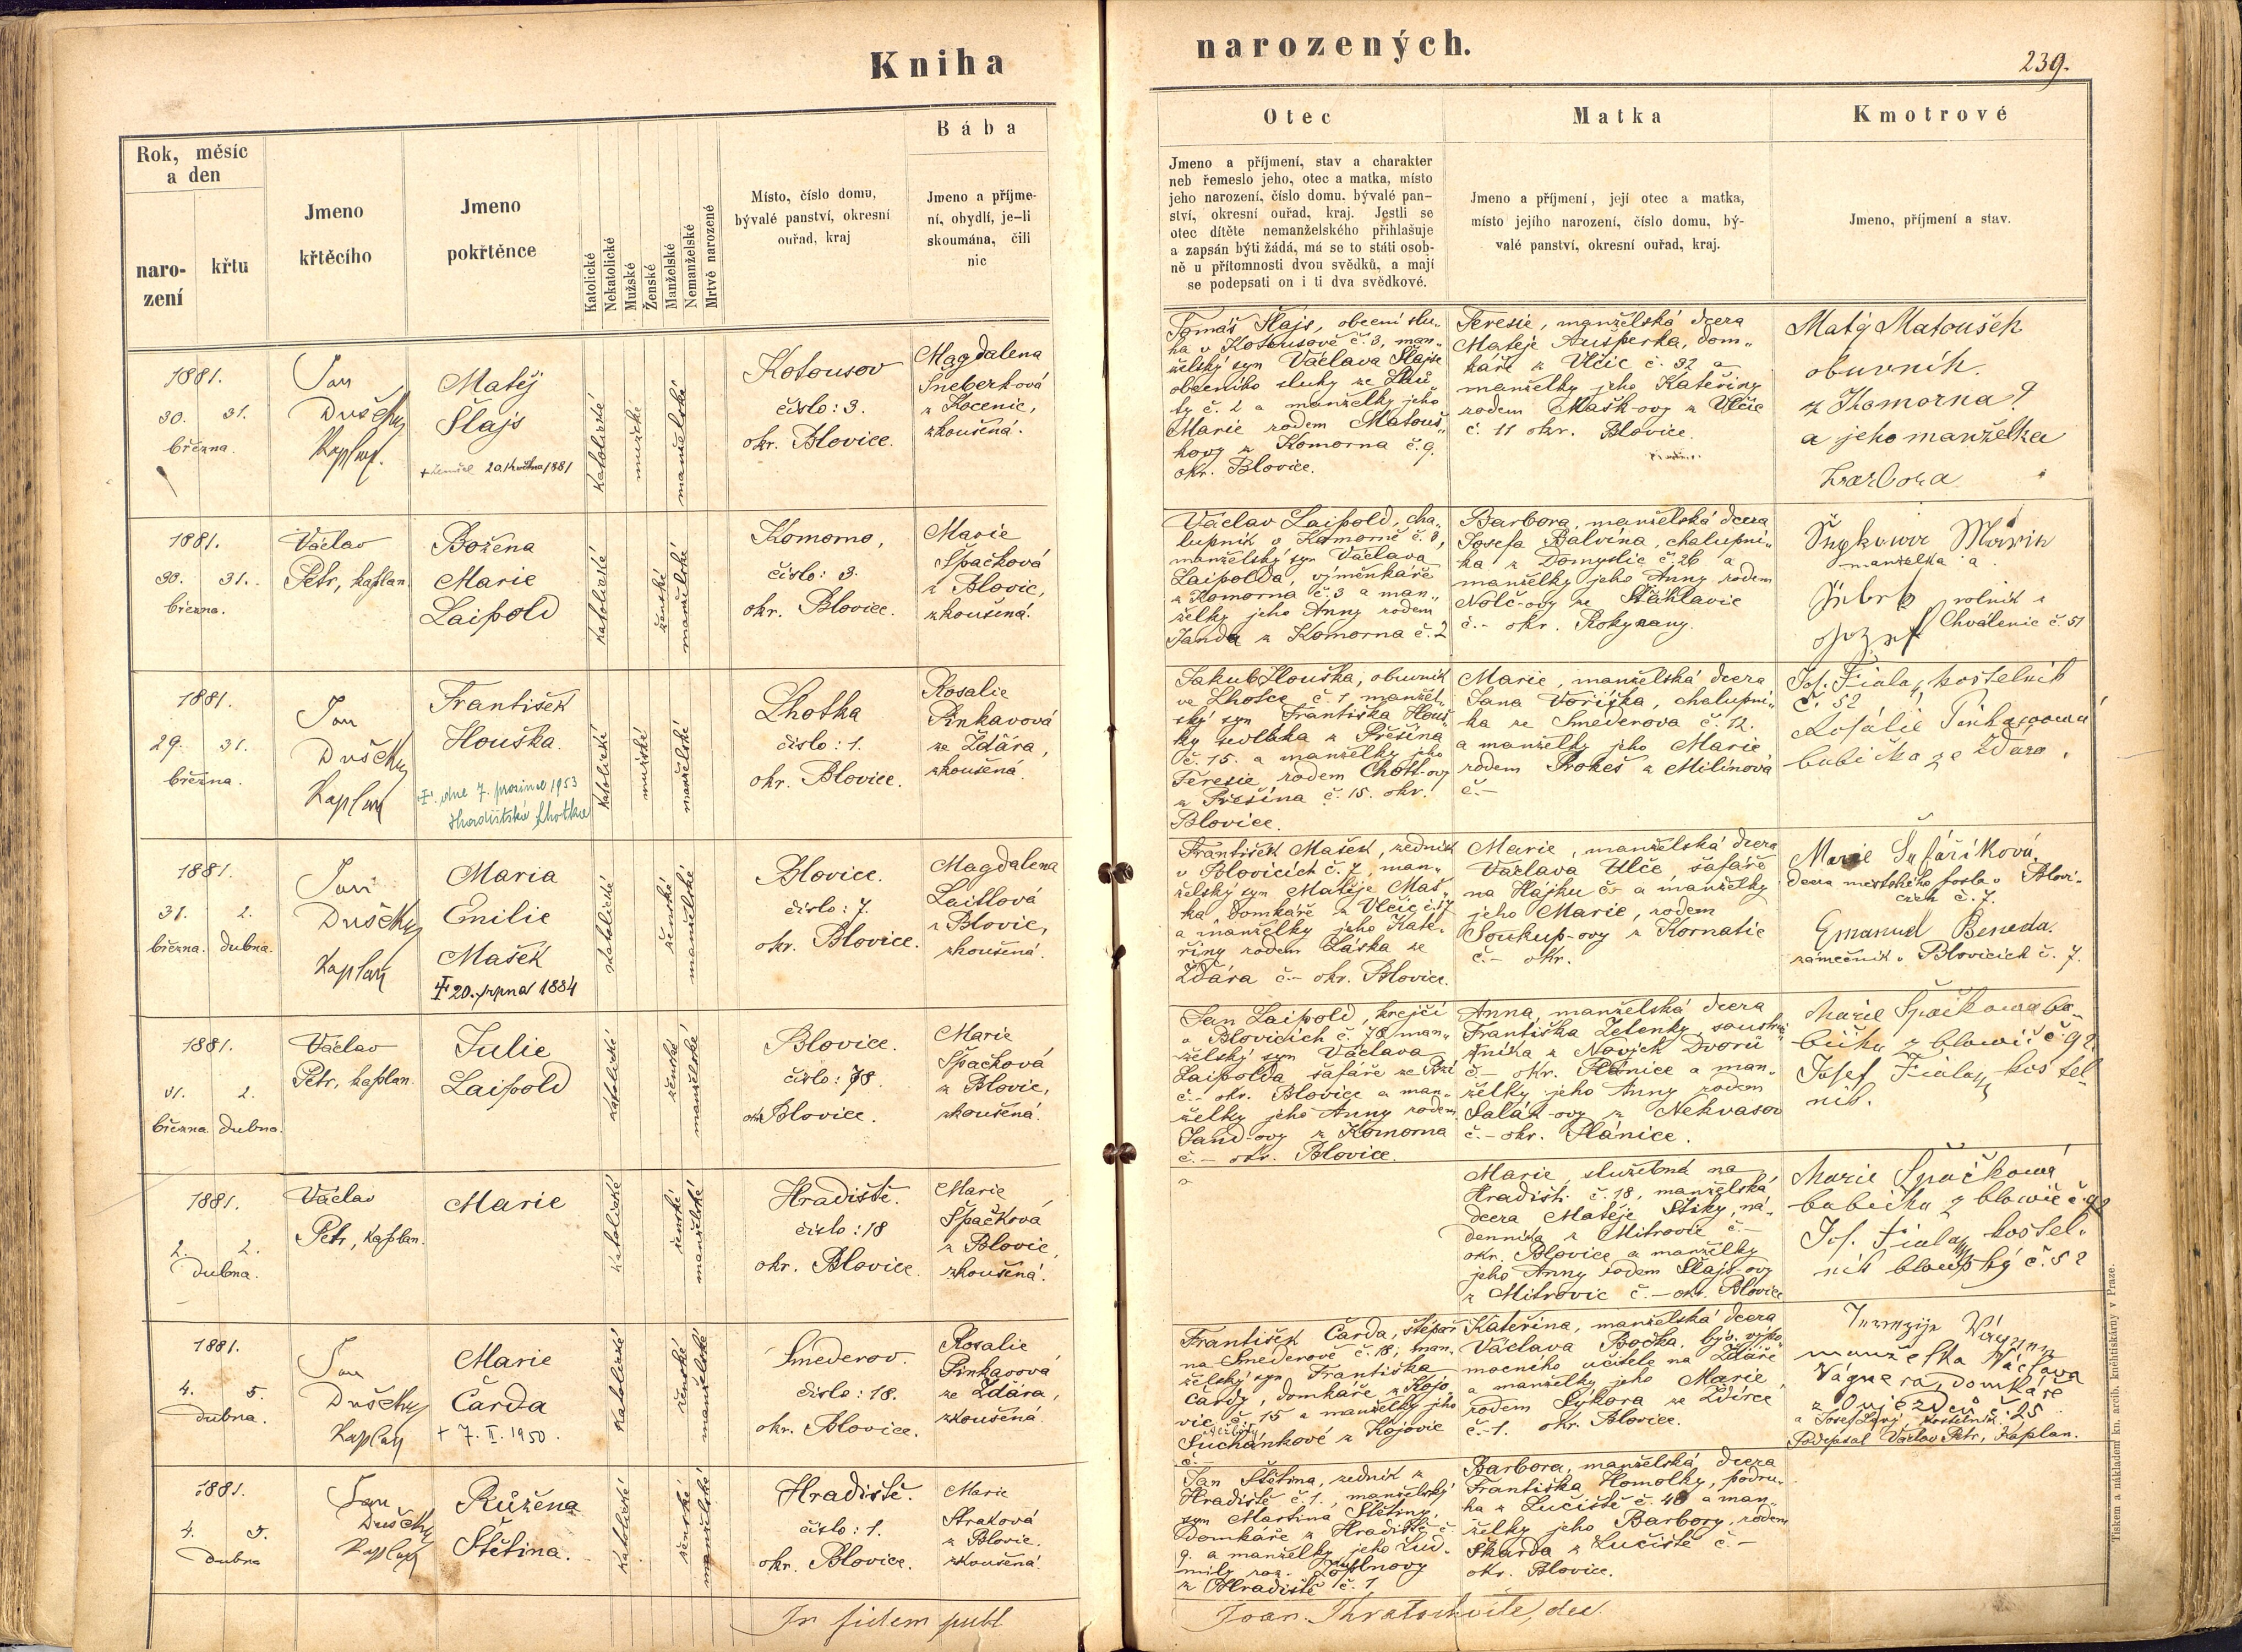 Kniha
narozených.
239.
Rok, měsíc
a den
naro-
zení
křtu
Jmeno
křtěcího
Jmeno
pokřtěnce
Katolické
Nekatolické
Mužské
Ženské
Manželské
Nemanželské
Mrtvě narozené
Místo, číslo domu,
bývalé panství, okresní
ouřad, kraj
Bába
Jmeno a příjme-
ní, obydlí, je-li
skoumána, čili
nic
Otec
Jmeno a příjmení, stav a charakter
neb řemeslo jeho, otec a matka, místo
jeho narození, číslo domu, bývalé pan-
ství, okresní ouřad, kraj. Jestli se
otec dítěte nemanželského přihlašuje
a zapsán býti žádá, má se to státi osob-
ně u přítomnosti dvou svědků, a mají
se podepsati on i ti dva svědkové.
Matka
Jmeno a příjmení, její otec a matka,
místo jejího narození, číslo domu, bý-
valé panství, okresní ouřad, kraj.
Kmotrové
Jmeno, příjmení a stav.
1881.
30. 31.
března.
Jan
Dušek
Kaplan.
Matěj
Šlajs
+ zemřel 20. května 1881
katolické
mužské
manželské
Kotousov
číslo: 3.
okr. Blovice.
Magdalena
Šneberková
z Kocenic,
zkoušená.
Tomáš Šlajs, obecní slu„
ha v Kotousově č. 3, man„
želský syn Václava Šlajse
obecního sluhy ze Lhů„
ty č. 2 a manželky jeho
Marie rodem Matouš„
kovy z Komorna č. 9.
okr. Blovice.
Teresie, manželská dcera
Matěje Aušperka, dom„
káře z Vlčic č. 32 a
manželky jeho Kateřiny
rodem Mašk-ovy z Vlčic
č. 11 okr. Blovice.
Matěj Matoušek
obuvník.
z Komorna 9
a jeho manželka
Barbora
1881.
30. 31.
března.
Václav
Petr, kaplan.
Božena
Marie
Laipold
katolické
ženské
manželské
Komorno,
číslo: 3.
okr. Blovice.
Marie
Špačková
z Blovic,
zkoušená.
Václav Laipold, cha„
lupník v Komorně č. 3,
manželský syn Václava
Laipolda, výměnkáře
z Komorna č. 3 a man„
želky jeho Anny rodem
Janda z Komorna č. 2
Barbora, manželská dcera
Josefa Balvína, chalupní„
ka z Domyslic č. 26 a
manželky jeho Anny rodem
Nolč-ovy ze Šťáhlavic
č.- okr. Rokycany.
manželka a
rolník z
Chválenic č. 51
1881.
29. 31.
března.
Jan
Dušek
Kaplan
František
Houška.
+ dne 7. prosince 1953
Hradišťská Lhotka
katolické
mužské
manželské
Lhotka
číslo: 1.
okr. Blovice.
Rosalie
Pinkavová
ze Ždára,
zkoušená.
Jakub Houška, obuvník
ve Lhotce č. 1 manžel„
ský syn Františka Houš„
ky sedláka z Přešína
č. 15. a manželky jeho
Teresie, rodem Chott-ovy
z Přešína č. 15. okr.
Blovice.
Marie, manželská dcera
Jana Voříška, chalupní„
ka ze Smederova č. 12.
a manželky jeho Marie,
rodem Prokeš z Milínova
č.-
Jos. Fiala, kostelník
č. 52
Rosálie Pinkavová
babička ze Ždára.
1881.
31. 2.
března. dubna.
Jan
Dušek
Kaplan
Maria
Emilie
Mašek
+ 20. srpna 1884
katolické
ženské
manželské
Blovice.
číslo: 7.
okr. Blovice.
Magdalena
Laitlová
z Blovic,
zkoušená.
František Mašek, zedník
v Blovicích č. 7, man„
želský syn Matěje Maš„
ka, domkáře z Vlčic č. 17
a manželky jeho Kate„
řiny rodem Láska ze
Ždára č.- okr. Blovice.
Marie, manželská dcera
Václava Ulče, šafáře
na Hájku č. a manželky
jeho Marie, rodem
Soukup-ovy z Kornatic
č.- okr.
Marie Šafaříková,
dcera městského posla v Blovi-
cích č. 7.
Emanuel Beneda.
zámečník v Blovicích č. 7.
1881.
31. 2.
března. dubna.
Václav
Petr, kaplan.
Julie
Laipold
katolické
ženské
manželské
Blovice.
číslo: 78.
okr. Blovice.
Marie
Špačková
z Blovic,
zkoušená.
Jan Laipold, krejčí
v Blovicích č. 78 man„
želský syn Václava
Laipolda šafáře ze Bzí
č.- okr. Blovice a man„
želky jeho Anny rodem
Jand-ovy z Komorna
č.- okr. Blovice.
Anna, manželská dcera
Františka Zelenky, soustruž
níka z Nových Dvorů
č.- okr. Plánice a man„
želky jeho Anny rodem
Salák-ovy z Nekvasov
č.- okr. Plánice.
Marie Špačkowa ba-
bička z blowic č 92
Josef Fiala, kostel-
ník.
1881.
2. 2.
dubna.
Václav
Petr, Kaplan.
Marie
katolické
ženské
manželské
Hradiště.
číslo: 18
okr. Blovice.
Marie
Špačková
z Blovic,
zkoušená.
Marie, služebná na
Hradišti č. 18, manželská
dcera Matěje Štiky, ná„
denníka z Mitrovic č.-
okr. Blovice a manželky
jeho Anny rodem Šlajs-ovy
z Mitrovic č.- okr. Blovice
Marie Špačkowá
babička z blowic č. 92
Jos. Fiala, kostel-
ník blowský č. 52
1881.
4. 5.
dubna.
Jan
Dušek
Kaplan
Marie
Čarda
+ 7. II. 1950.
katolické
ženské
manželské
Smederov.
číslo: 18.
okr. Blovice.
Rosalie
Pinkavová
ze Ždára,
zkoušená.
František Čarda, štěpař
na Smederově č. 18, man.
želský syn Františka
Čardy, domkáře z Kojo„
vic č. 15 a manželky jeho
Suchánkové z Kojovic
č.-
Kateřina, manželská dcera
Václava Bočka, býv. výpo„
mocného učitele na Ždáře
a manželky jeho Marie,
rodem Sýkora ze Ždírce
č.-1. okr. Blovice.
manželka Václava
Vágnera, domkáře
č. 25.
a Josef Lavý, kostelník.
Podepsal Václav Petr, Kaplan.
1881.
4. 5.
dubna
Jan
Dušek
Kaplan
Růžena
Štětina.
katolické
ženské
manželské
Hradiště.
číslo: 1.
okr. Blovice.
Marie
Straková
z Blovic.
zkoušená.
Jan Štětina, zedník z
Hradiště č. 1., manželský
syn Martina Štětiny,
domkáře z Hradiště č.
9. a manželky jeho Lud„
mily roz.
z Hradiště č. 1
Barbora, manželská dcera
Františka Homolky, podru„
ha z Lučiště č. 40 a man„
želky jeho Barbory, rodem
Škarda z Lučiště č.-
okr. Blovice.
In fidem publ.
Joan.
Tiskem a nákladem kn. arcib. knihtiskárny v Praze.